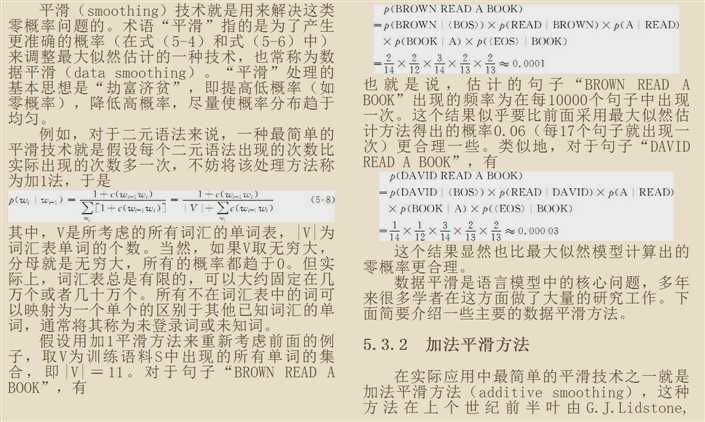 平滑（smoothing）技术就是用来解决这类
零概率问题的。术语“平滑”指的是为了产生
更准确的概率（在式（5-4）和式（5-6）中）
来调整最大似然估计的一种技术，也常称为数
据平滑（data smoothing）。“平滑”处理的
基本思想是“劫富济贫”，即提高低概率（如
零概率），降低高概率，尽量使概率分布趋于
均匀。
例如，对于二元语法来说，一种最简单的
平滑技术就是假设每个二元语法出现的次数比
实际出现的次数多一次，不妨将该处理方法称
为加1法，于是
p(wᵢ | wᵢ₋₁) = (1+c(wᵢ₋₁wᵢ)) / (∑_{wᵢ}[1+c(wᵢ₋₁wᵢ)]) = (1+c(wᵢ₋₁wᵢ)) / (|V|+∑_{wᵢ}c(wᵢ₋₁wᵢ)) (5-8)
其中，V是所考虑的所有词汇的单词表，|V|为
词汇表单词的个数。当然，如果V取无穷大，
分母就是无穷大，所有的概率都趋于0。但实
际上，词汇表总是有限的，可以大约固定在几
万个或者几十万个。所有不在词汇表中的词可
以映射为一个单个的区别于其他已知词汇的单
词，通常将其称为未登录词或未知词。
假设用加1平滑方法来重新考虑前面的例
子，取V为训练语料S中出现的所有单词的集
合，即|V|＝11。对于句子“BROWN READ A
BOOK”，有
p(BROWN READ A BOOK)
=p(BROWN | ⟨BOS⟩)×p(READ | BROWN)×p(A | READ)
×p(BOOK | A)×p(⟨EOS⟩ | BOOK)
=2/14×1/12×3/14×2/13×2/13≈0.0001
也就是说，估计的句子“BROWN READ A
BOOK”出现的频率为在每10000个句子中出现
一次。这个结果似乎要比前面采用最大似然估
计方法得出的概率0.06（每17个句子就出现一
次）更合理一些。类似地，对于句子“DAVID
READ A BOOK”，有
p(DAVID READ A BOOK)
=p(DAVID | ⟨BOS⟩)×p(READ | DAVID)×p(A | READ)
×p(BOOK | A)×p(⟨EOS⟩ | BOOK)
=1/14×1/12×3/14×2/13×2/13≈0.00003
这个结果显然也比最大似然模型计算出的
零概率更合理。
数据平滑是语言模型中的核心问题，多年
来很多学者在这方面做了大量的研究工作。下
面简要介绍一些主要的数据平滑方法。
5.3.2 加法平滑方法
在实际应用中最简单的平滑技术之一就是
加法平滑方法（additive smoothing），这种
方法在上个世纪前半叶由G.J.Lidstone,